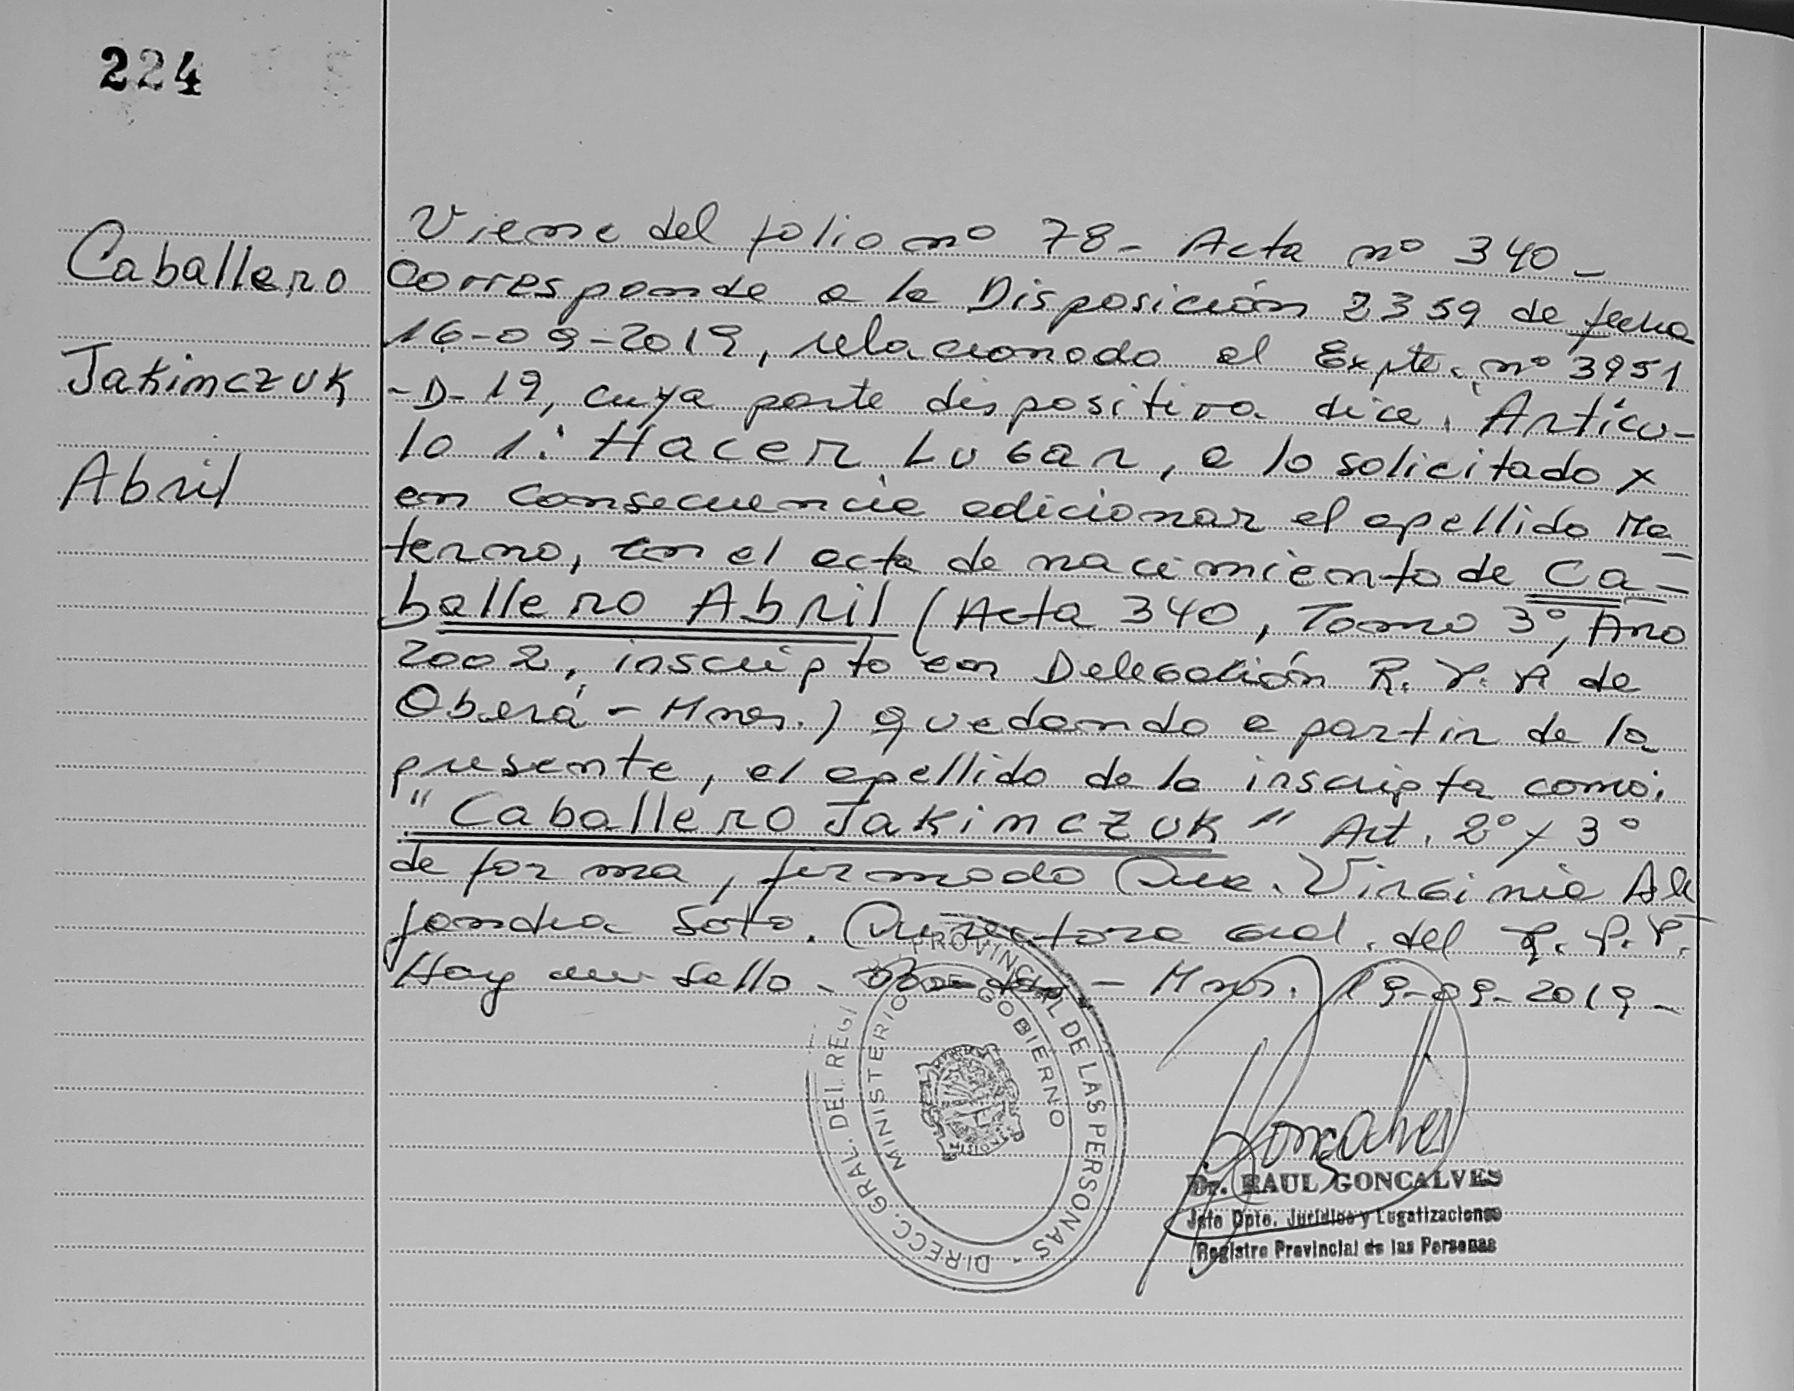 224
Caballero
Jakimczuk
Abril
Viene del folio nº 78- Acta nº 340-
Corresponde a la Disposición 2359 de fecha
16-09-2019, relacionado al Expte. nº 3951
-D-19, cuya parte dispositiva dice: Artícu-
lo 1: Hacer Lugar, a lo solicitado y
en consecuencia adicionar el apellido Ma-
terno, en el acta de nacimiento de Ca-
ballero Abril (Acta 340, Tomo 3º, Año
2002, inscripto en Delegación R.P.P. de
Oberá - Mnes.) quedando a partir de la
presente, el apellido de la inscripta como:
"Caballero Jakimczuk" Art. 2º y 3º
de forma, firmado Dra. Virginia Ale
jandra Soto. Directora Gral. del R.P.P.
Hay un sello. - Mnes. 19-09-2019-
DIRECC. GRAL. DEL REGI PROVINCIAL DE LAS PERSONAS -
MINISTERIO DE GOBIERNO
Goncalves
Dr. RAUL GONCALVES
Jefe Dpto. Jurídico y Legalizaciones
Registro Provincial de las Personas